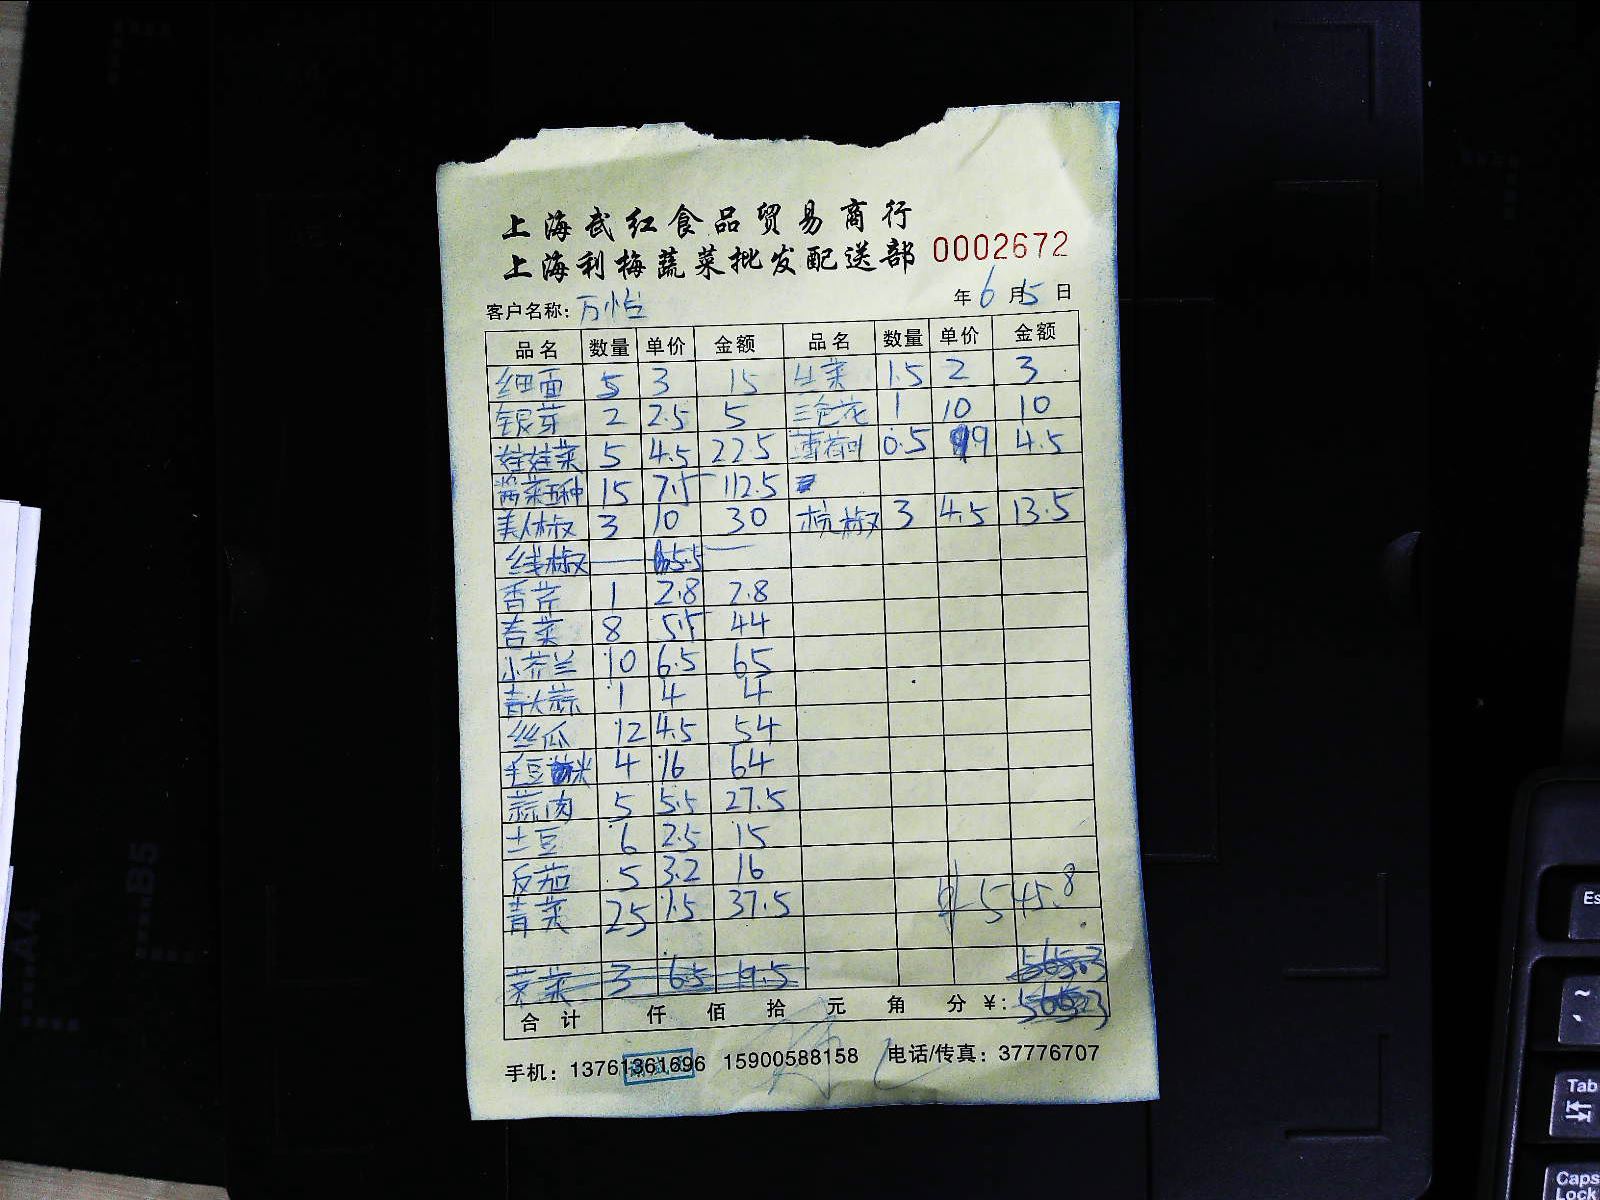 上海武红食品贸易商行
上海利梅蔬菜批发配送部 0002672
客户名称: 万怡 年 6 月 5 日
品名 数量 单价 金额 品名 数量 单价 金额
细面 5 3 15 生菜 1.5 2 3
银芽 2 2.5 5 三色花 1 10 10
娃娃菜 5 4.5 22.5 薄荷叶 0.5 9 4.5
酱菜五种 15 7.5 112.5
美人椒 3 10 30 杭椒 3 4.5 13.5
线椒 — 5.5 —
香芹 1 2.8 2.8
苔菜 8 5.5 44
小芥兰 10 6.5 65
青大蒜 1 4 4
丝瓜 12 4.5 54
毛豆米 4 16 64
蒜肉 5 5.5 27.5
土豆 6 2.5 15
反茄 5 3.2 16
青菜 25 1.5 37.5 545.8
荠菜 3 6.5 19.5 565.3
合计 仟 佰 拾 元 角 分 ¥: 565.3
手机: 13761361696 15900588158 电话/传真: 37776707
A4
B5
Es
~
Tab
Caps
Lock